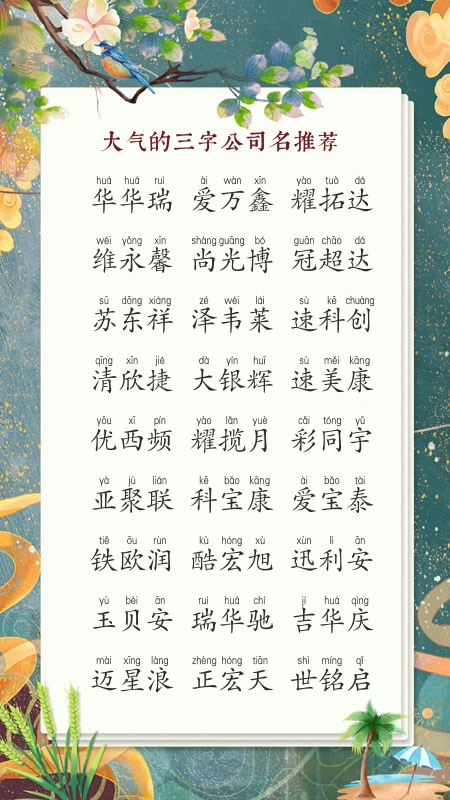 大气的三字公司名推荐
huá huá ruì ài wàn xīn yào tuò dá
华华瑞 爱万鑫 耀拓达
wéi yǒng xīn shàng guāng bó guān chāo dá
维永馨 尚光博 冠超达
sū dōng xiáng zé wéi lái sù kē chuàng
苏东祥 泽韦莱 速科创
qīng xīn jié dà yín huī sù měi kāng
清欣捷 大银辉 速美康
yōu xī pín yào lǎn yuè cǎi tóng yǔ
优西频 耀揽月 彩同宇
yà jù lián kē bǎo kāng ài bǎo tài
亚聚联 科宝康 爱宝泰
tiě ōu rùn kù hóng xù xùn lì ān
铁欧润 酷宏旭 迅利安
yù bèi ān ruì huá chí jí huá qìng
玉贝安 瑞华驰 吉华庆
mài xīng làng zhèng hóng tiān shì míng qǐ
迈星浪 正宏天 世铭启